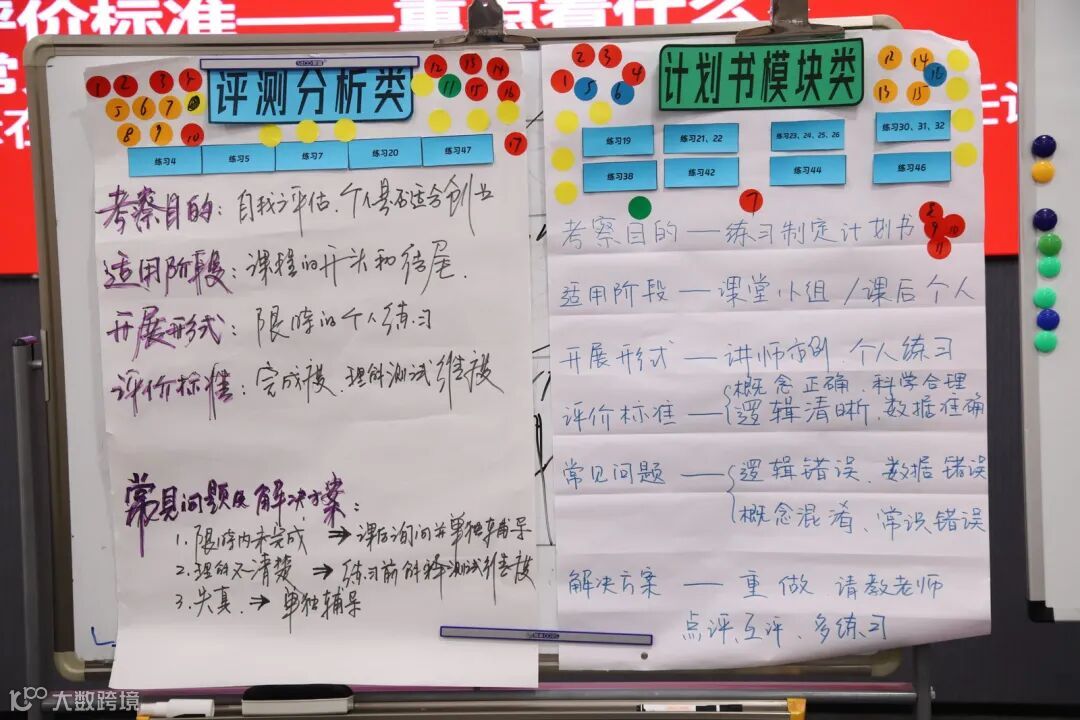 评价标准——重点看什么
评测分析类
练习4
练习5
练习7
练习20
练习47
考察目的：自我评估、个人是否适合创业
适用阶段：课程的开头和结尾.
开展形式：限时的个人练习
评价标准：完成度、理解测试维度
常见问题及解决方案：
1. 限时内未完成 → 课后询问并单独辅导
2. 理解不清楚 → 练习前解释测试维度
3. 失真. → 单独辅导
计划书模块类
练习19
练习21、22
练习23、24、25、26
练习30、31、32
练习38
练习42
练习44
练习46
考察目的——练习制定计划书
适用阶段——课堂小组/课后个人
开展形式——讲师市例、个人练习
评价标准——概念正确、科学合理
逻辑清晰、数据准确
常见问题——逻辑错误、数据错误
概念混淆、常识错误
解决方案——重做、请教老师
点评、互评、多练习
大数跨境